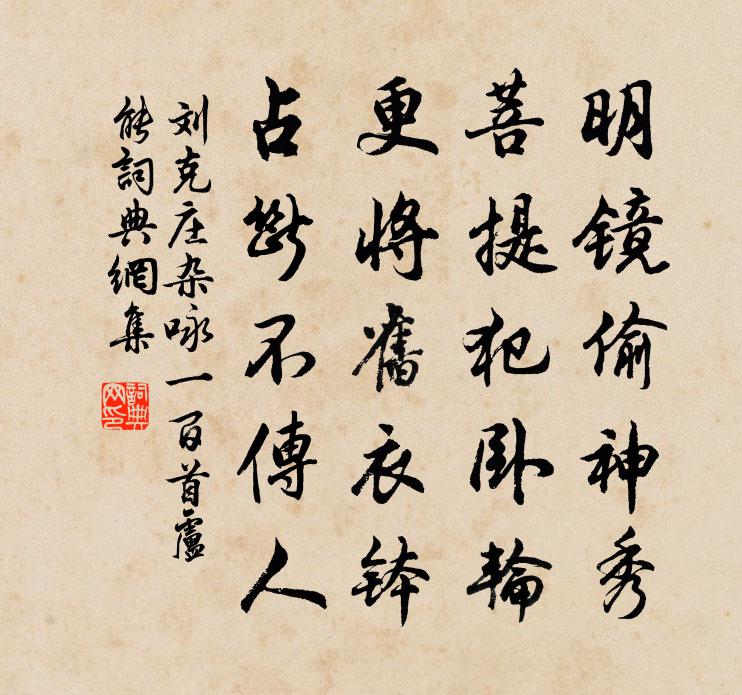 明镜偷神秀
菩提犯卧輪
更將舊衣钵
占断不傳人
刘克庄杂咏一百首盧
能詞典網集
詞典网印